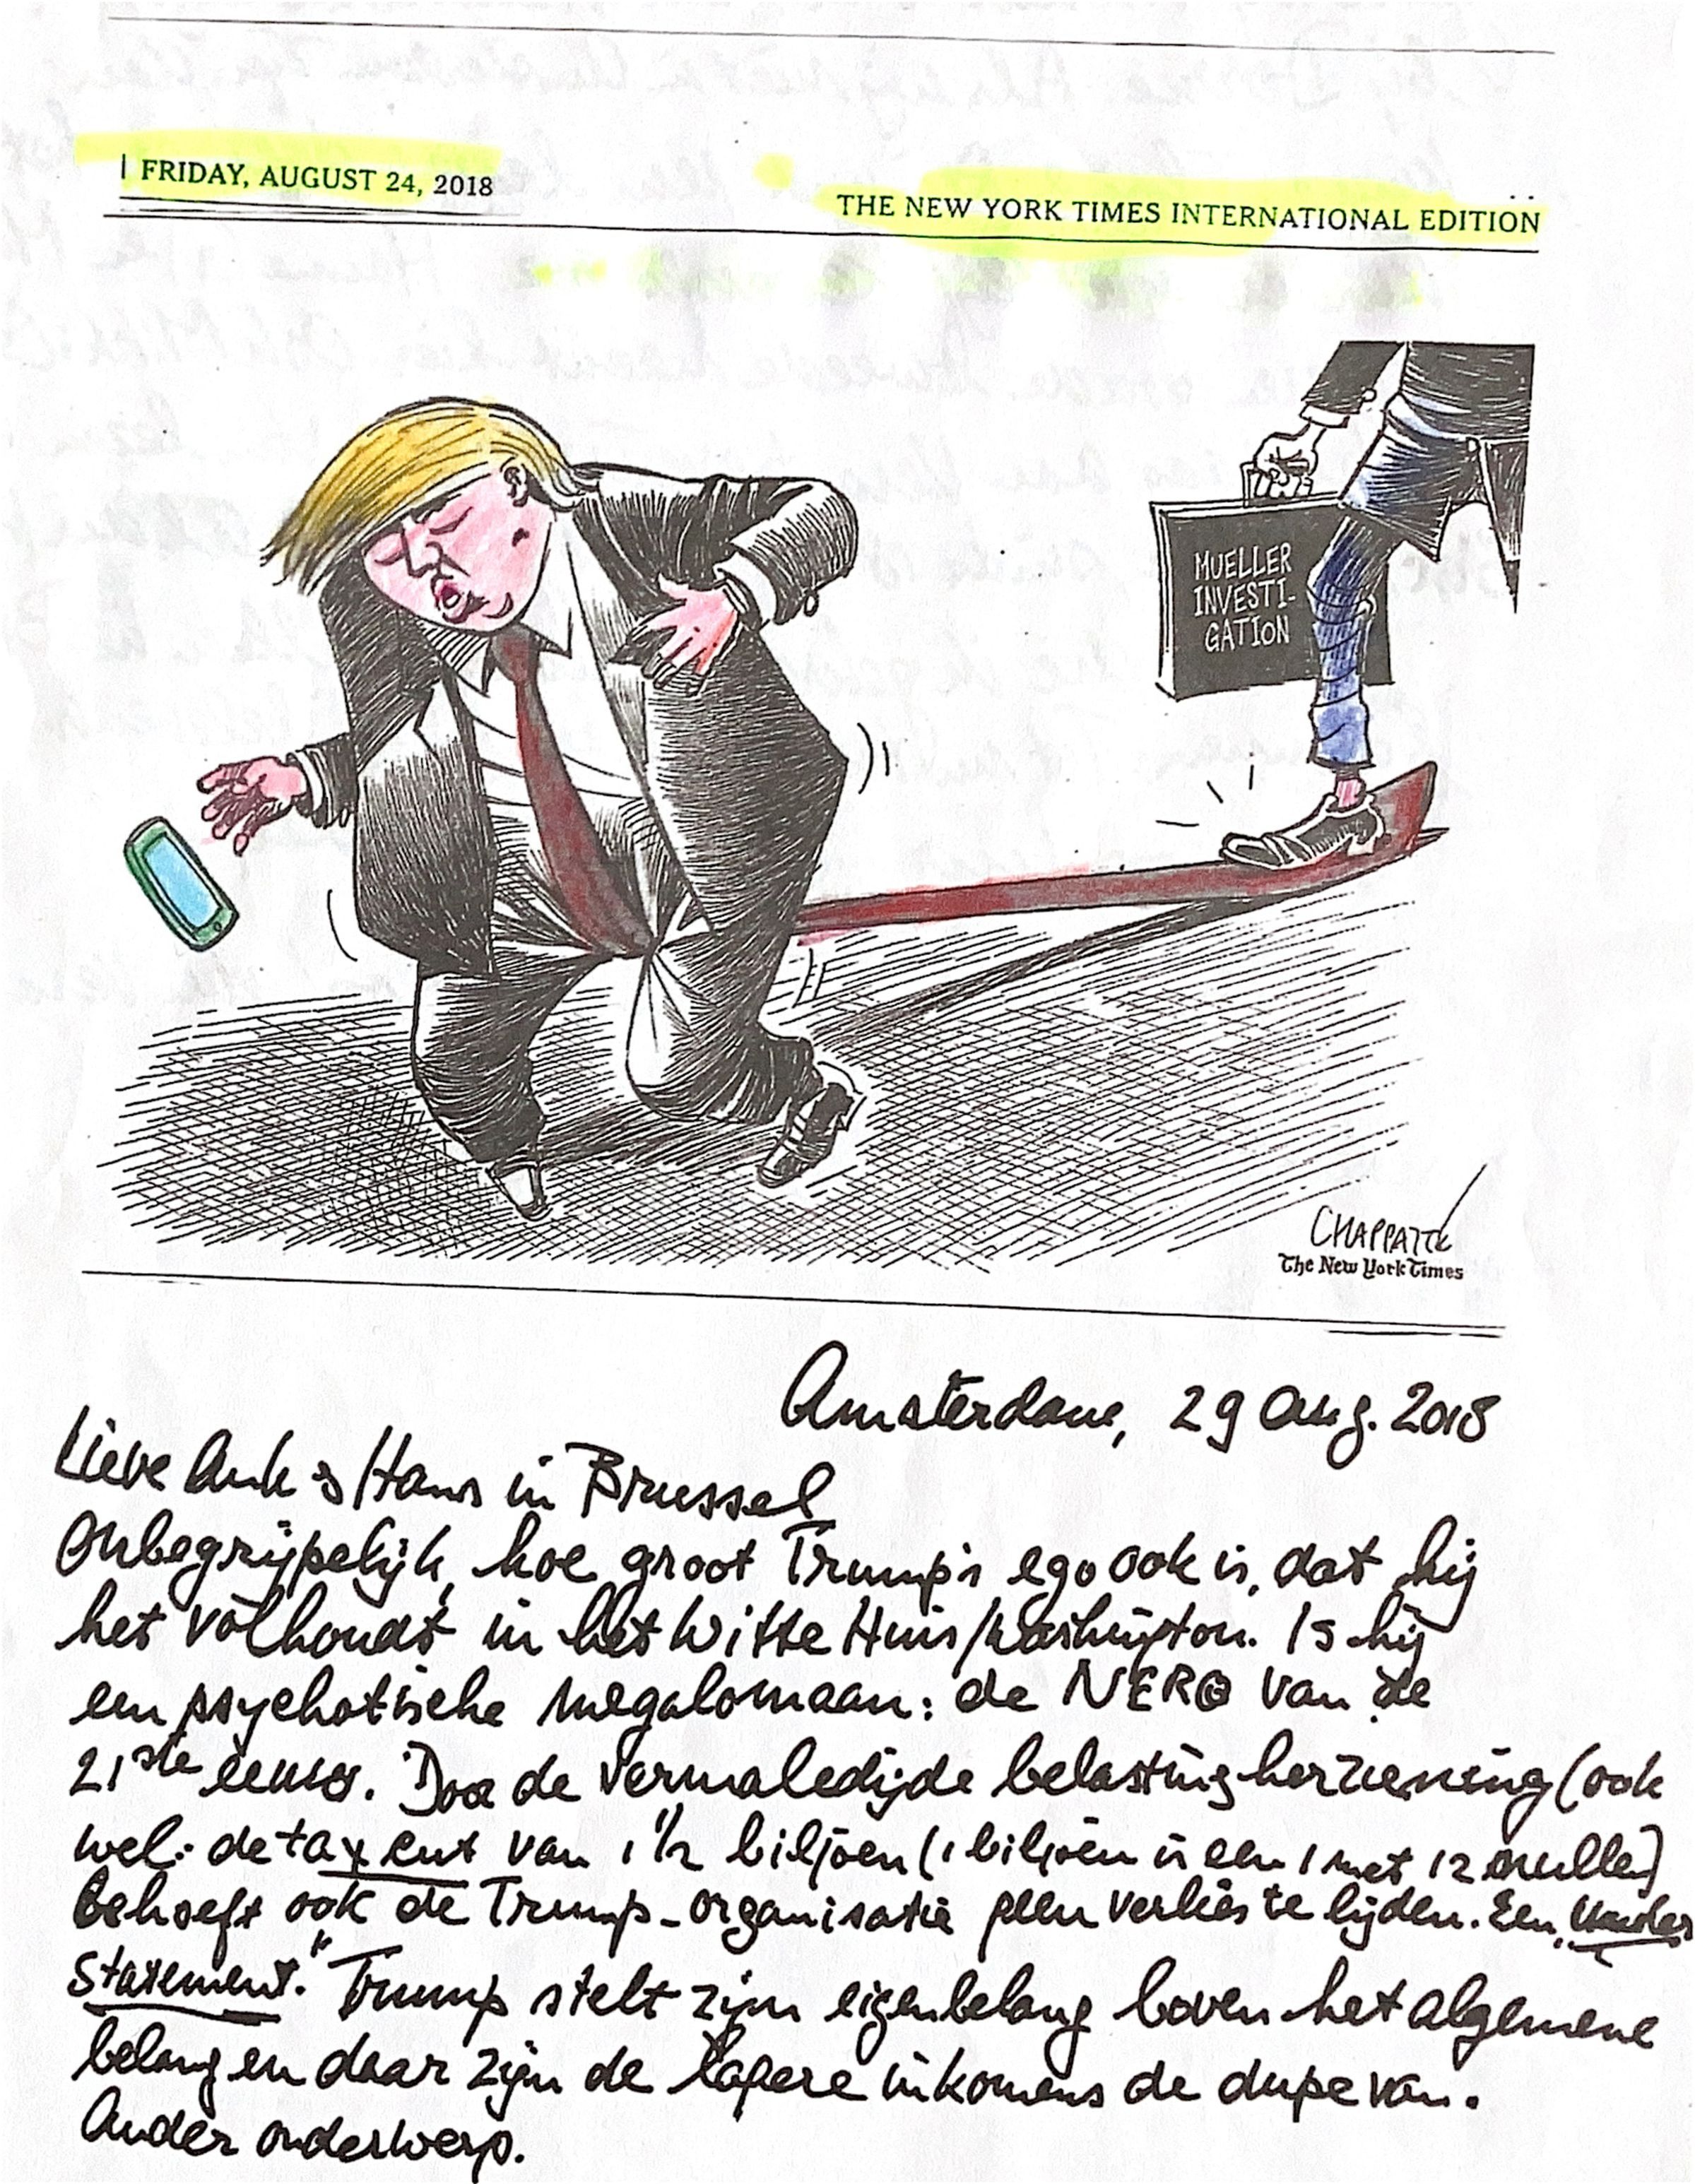 FRIDAY, AUGUST 24, 2018
THE NEW YORK TIMES INTERNATIONAL EDITION
MUELLER
INVESTI-
GATION
CHAPPATTE
The New York Times
Amsterdam, 29 Aug. 2018
Lieve Ank & Hans in Brussel
Onbegrijpelijk, hoe groot Trump's ego ook is, dat hij
het volhoudt in het Witte Huis/Washington. Is hij
een psychotische megalomaan: de NERO van de
21ste eeuw. Door de vermaledijde belastingherziening (ook
wel: de tax cut van 1 1/2 biljoen (1 biljoen is een 1 met 12 nullen)
behoeft ook de Trump-organisatie geen verlies te lijden. Een "Under
statement." Trump stelt zijn eigenbelang boven het algemene
belang en daar zijn de lagere inkomens de dupe van.
Ander onderwerp.